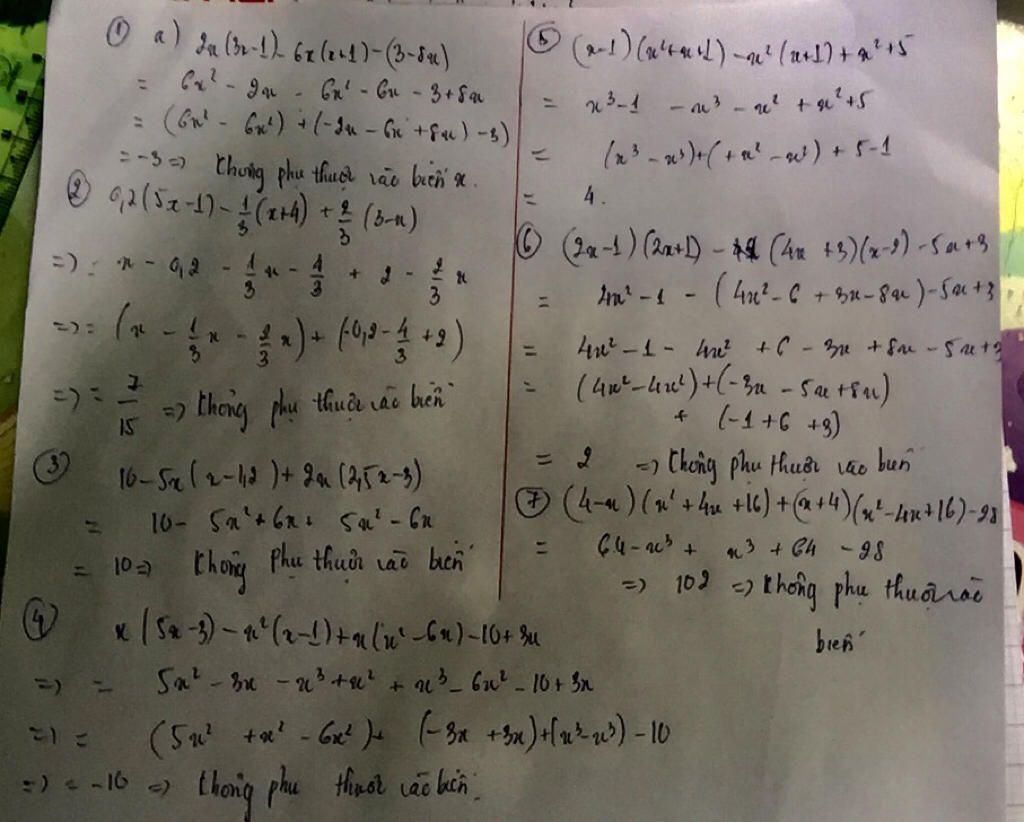 ① a) 2x(3x-1)-6x(x+1)-(3-8x)
= 6x² - 2x - 6x² - 6x - 3+8x
= (6x² - 6x²) + (-2x - 6x + 8x) - 3)
= -3 => Không phụ thuộc vào biến x.
② 0,2(5x-1) - 1/3(x+4) + 2/3(3-x)
=> = x - 0,2 - 1/3x - 4/3 + 2 - 2/3x
=> = (x - 1/3x - 2/3x) + (-0,2 - 4/3 + 2)
=> = 7/15 => Không phụ thuộc vào biến
③ 10-5x(x-1,2)+2x(2,5x-3)
= 10 - 5x² + 6x + 5x² - 6x
= 10 => Không phụ thuộc vào biến
④ x(5x-3) - x²(x-1) + x(x² - 6x) - 10 + 3x
=> = 5x² - 3x - x³ + x² + x³ - 6x² - 10 + 3x
=> = (5x² + x² - 6x²) + (-3x + 3x) + (x³ - x³) - 10
=> = -10 => Không phụ thuộc vào biến.
⑤ (x-1)(x²+x+1) - x²(x+1) + x² + 5
= x³ - 1 - x³ - x² + x² + 5
= (x³ - x³) + (+x² - x²) + 5 - 1
= 4.
⑥ (2x-1)(2x+1) - (4x + 3)(x-2) - 5x + 3
= 4x² - 1 - (4x² - 6 + 3x - 8x) - 5x + 3
= 4x² - 1 - 4x² + 6 - 3x + 8x - 5x + 3
= (4x² - 4x²) + (-3x - 5x + 8x)
+ (-1 + 6 + 3)
= 2 => Không phụ thuộc vào biến
⑦ (4-x)(x² + 4x + 16) + (x+4)(x² - 4x + 16) - 28
= 64 - x³ + x³ + 64 - 28
=> 102 => Không phụ thuộc vào
biến